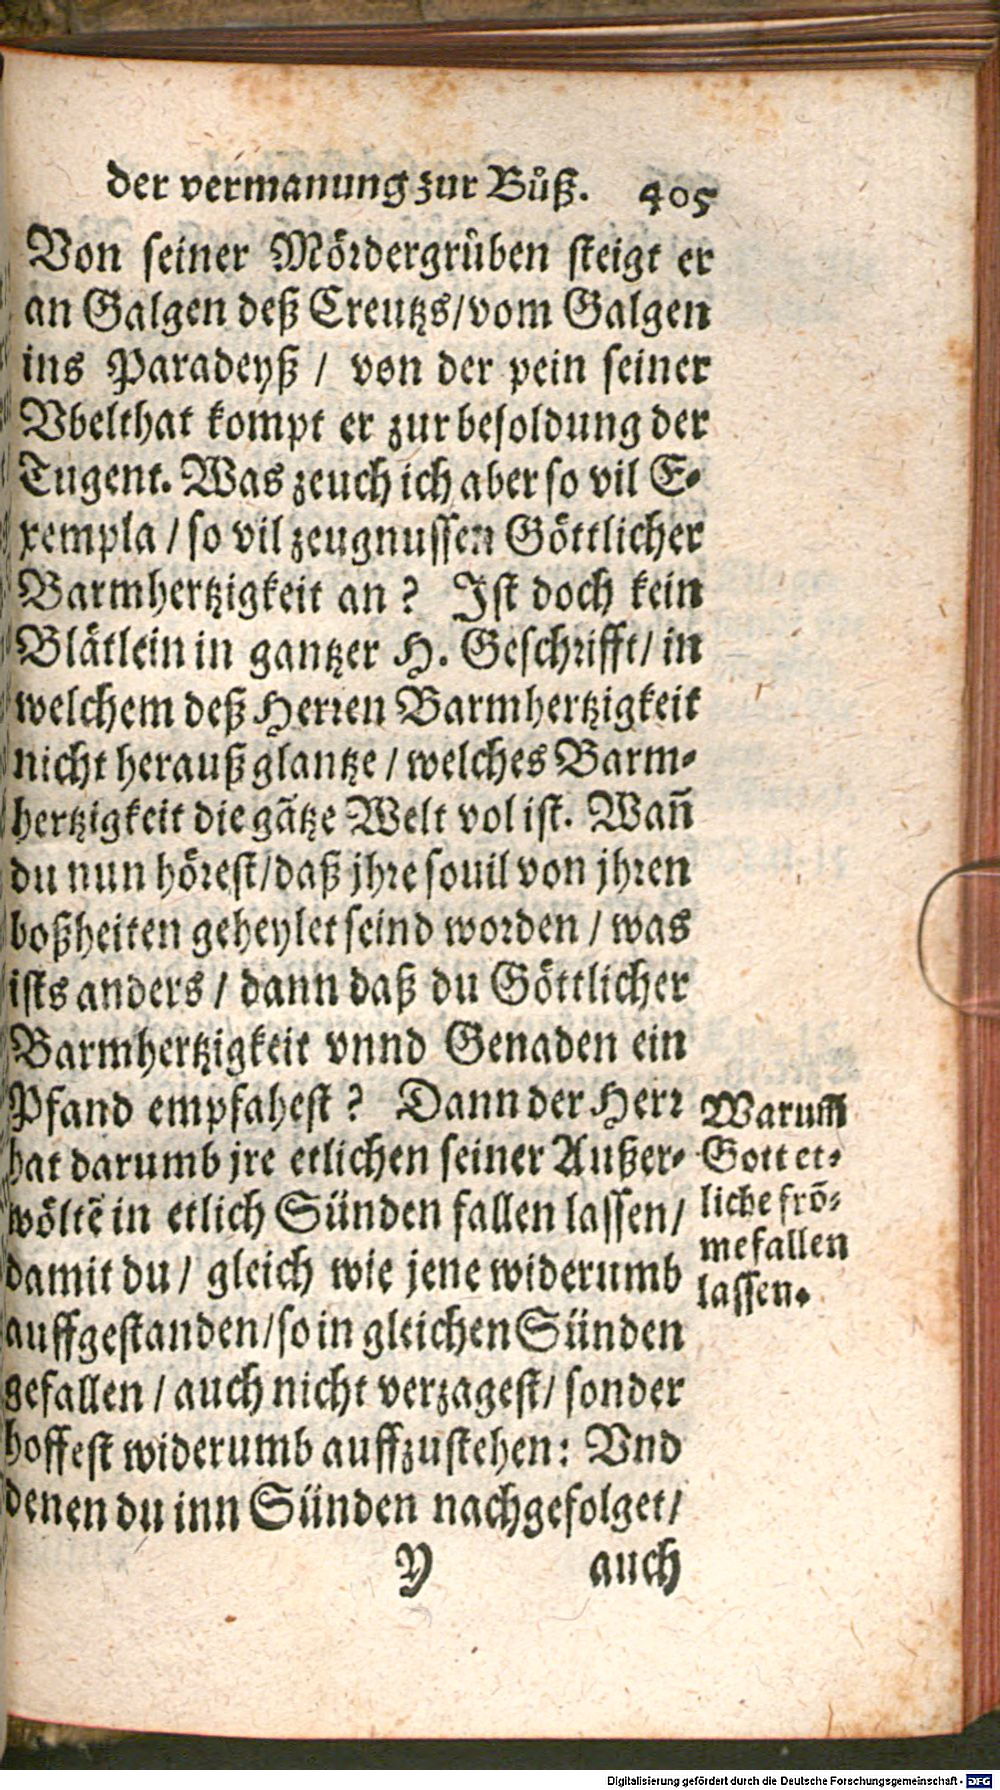 der vermanung zur Bůß. 405
Von seiner Mördergrůben steigt er
an Galgen deß Creutzs/vom Galgen
ins Paradeyß / von der pein seiner
Vbelthat kompt er zur besoldung der
Tugent. Was zeuch ich aber so vil E-
xempla / so vil zeugnussen Göttlicher
Barmhertzigkeit an ? Ist doch kein
Blätlein in gantzer H. Geschrifft/ in
welchem deß Herren Barmhertzigkeit
nicht herauß glantze / welches Barm-
hertzigkeit die gãtze Welt vol ist. Wañ
du nun hörest/daß jhre souil von jhren
boßheiten geheylet seind worden / was
ists anders / dann daß du Göttlicher
Barmhertzigkeit vnnd Genaden ein
Pfand empfahest ? Dann der Herr
hat darumb jre etlichen seiner Außer-
wöltẽ in etlich Sünden fallen lassen/
damit du/ gleich wie jene widerumb
auffgestanden/so in gleichen Sünden
gefallen / auch nicht verzagest/ sonder
hoffest widerumb auffzustehen: Vnd
denen du inn Sünden nachgefolget/
Y auch
Warum̃
Gott et-
liche frõ-
me fallen
lassen.
Digitalisierung gefördert durch die Deutsche Forschungsgemeinschaft - DFG